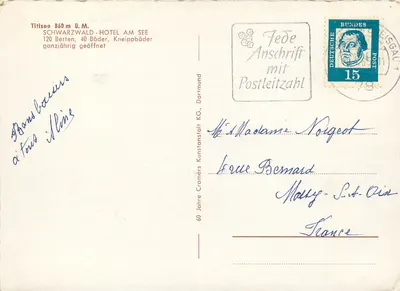 Titisee 860 m ü. M.
SCHWARZWALD-HOTEL AM SEE
120 Betten, 40 Bäder, Kneippbäder
ganzjährig geöffnet
Jede
Anschrift
mit
Postleitzahl
DEUTSCHE BUNDES POST
15
Bons baisers
à tous Aline
60 Jahre Cramers Kunstanstalt KG., Dortmund
Mr & Madame Norgeot
rue Bernard
France